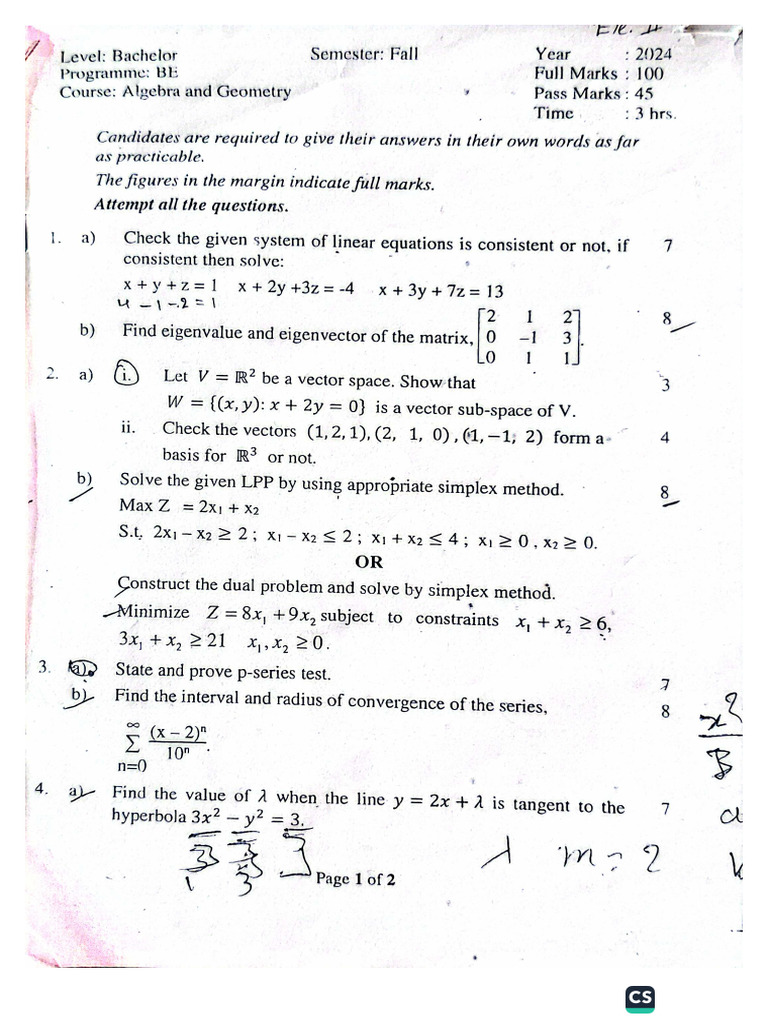 Ele. II
Level: Bachelor Semester: Fall Year : 2024
Programme: BE Full Marks : 100
Course: Algebra and Geometry Pass Marks : 45
Time : 3 hrs.
Candidates are required to give their answers in their own words as far
as practicable.
The figures in the margin indicate full marks.
Attempt all the questions.
1. a) Check the given system of linear equations is consistent or not, if 7
consistent then solve:
x + y + z = 1 x + 2y +3z = -4 x + 3y + 7z = 13
4 - 1 - 2 = 1
b) Find eigenvalue and eigenvector of the matrix, [2 1 2; 0 −1 3; 0 1 1]. 8
2. a) i. Let V = ℝ² be a vector space. Show that 3
W = {(x, y): x + 2y = 0} is a vector sub-space of V.
ii. Check the vectors (1, 2, 1), (2, 1, 0) , (1, −1, 2) form a 4
basis for ℝ³ or not.
b) Solve the given LPP by using appropriate simplex method. 8
Max Z = 2x₁ + x₂
S.t. 2x₁ − x₂ ≥ 2 ; x₁ − x₂ ≤ 2 ; x₁ + x₂ ≤ 4 ; x₁ ≥ 0 , x₂ ≥ 0.
OR
Construct the dual problem and solve by simplex method.
Minimize Z = 8x₁ + 9x₂ subject to constraints x₁ + x₂ ≥ 6,
3x₁ + x₂ ≥ 21 x₁, x₂ ≥ 0.
3. a) State and prove p-series test. 7
b) Find the interval and radius of convergence of the series, 8
∞
∑ (x − 2)ⁿ / 10ⁿ.
n=0
4. a) Find the value of λ when the line y = 2x + λ is tangent to the 7
hyperbola 3x² − y² = 3.
λ m = 2
Page 1 of 2
CS